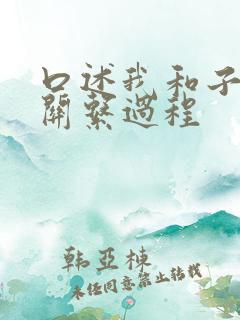 口述我和子
關繫過程
韩亚栋
未经同意禁止转载